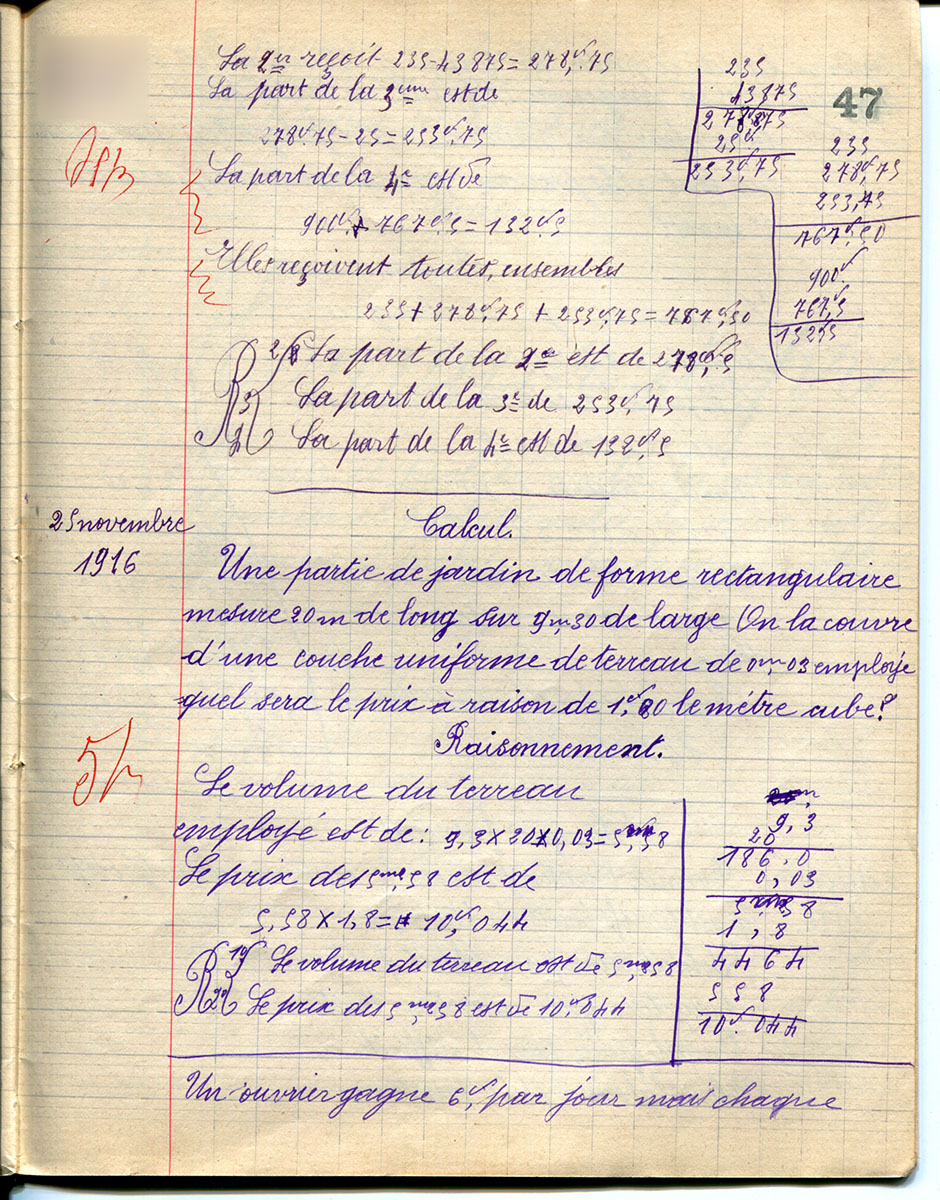 47
La 2er reçoit 235+43875=278f,75
La part de la 3ème est de
278f.75-25=253f,75
La part de la 4e est de
900f-767f,5=132f,5
Elles reçoivent toutes, ensembles
235+278f,75+253f,75=767f,50
235
43875
278f75
25f
253f,75
235
278f,75
253,75
767f,50
900f
767,5
132f5
R 2e La part de la 2e est de 278f,75
3 La part de la 3e de 253f,75
4 La part de la 4e est de 132f,5
25 novembre
1916
Calcul.
Une partie de jardin de forme rectangulaire
mesure 20m de long sur 9m,30 de large On la couvre
d'une couche uniforme de terreau de 0m,03 employé
quel sera le prix à raison de 1f,80 le mètre cube?
Raisonnement.
Le volume du terreau
employé est de: 9,3×20×0,03=5m3,58
Le prix des 5m3,58 est de
5,58×1,8=10f,044
R 1e Le volume du terreau est de 5m3,58
2e Le prix des 5m3,58 est de 10f,044
9,3
20
186,0
0,03
5m3,58
1,8
4464
558
10f.044
Un ouvrier gagne 6f, par jour mais chaque